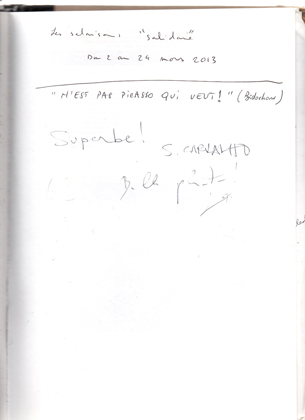 Les salaisons "Salidané"
Du 2 au 24 mars 2013
"N'EST PAS PICASSO QUI VEUT!" (Bidochon)
Superbe!
S. CARVALHO